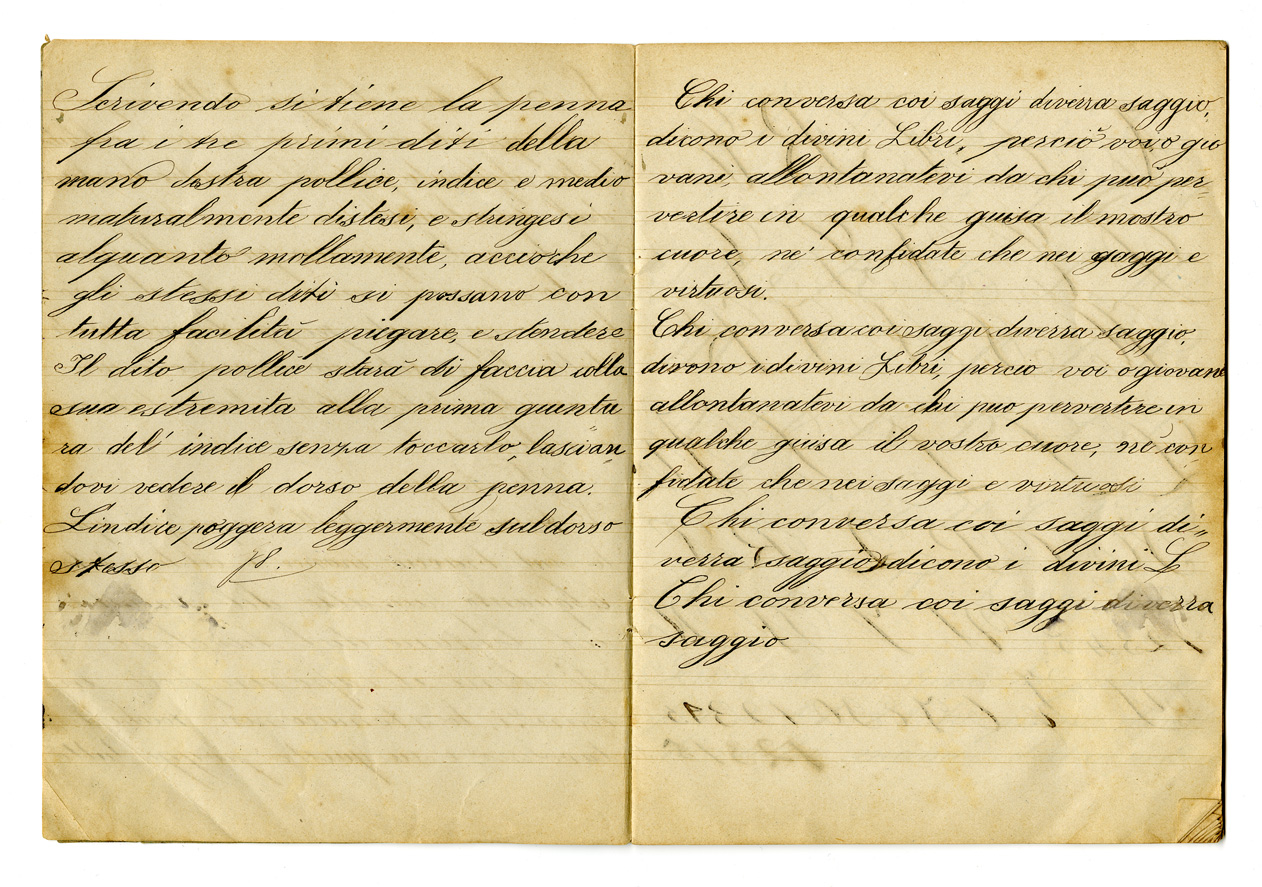 Scrivendo si tiene la penna
fra i tre primi diti della
mano destra pollice, indice e medio
naturalmente distesi, e stringesi
alquanto mollamente, accioche
gli stessi diti si possano con
tutta facilità piegare, e stendere
Il dito pollice starà di faccia colla
sua estremita alla prima giuntu
ra del' indice senza toccarlo, lascian„
dovi vedere il dorso della penna.
L'indice poggera leggermente sul dorso
stesso
Chi conversa coi saggi diverra saggio,
dicono i divini Libri, perciò voi, o gio
vani, allontanatevi da chi può per„
vertire in qualche guisa il mostro
cuore, nè confidate che nei gaggi e
virtuosi.
Chi conversa coi saggi diverra saggio,
divono i divini Libri, percio voi o giovane
allontanatevi da chi puo pervertere in
qualche guisa il vostro cuore, nè con„
fidate che nei saggi e virtuosi
Chi conversa coi saggi di„
verrà saggio, dicono i divini L
Chi conversa coi saggi diverra
saggio